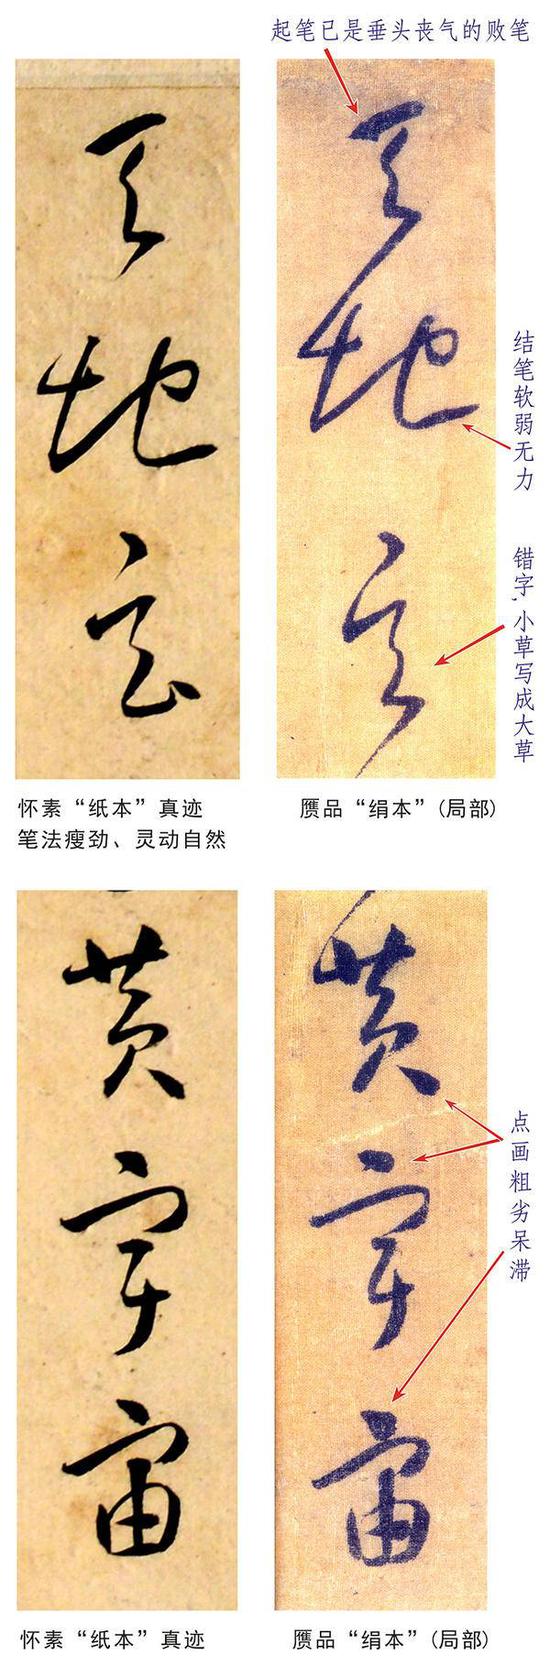 起笔已是垂头丧气的败笔
天地玄
天地玄
结笔软弱无力
错字,小草写成大草
怀素“纸本”真迹
笔法瘦劲、灵动自然
赝品“绢本”(局部)
黄宇宙
黄宇宙
点画粗劣呆滞
怀素“纸本”真迹
赝品“绢本”(局部)